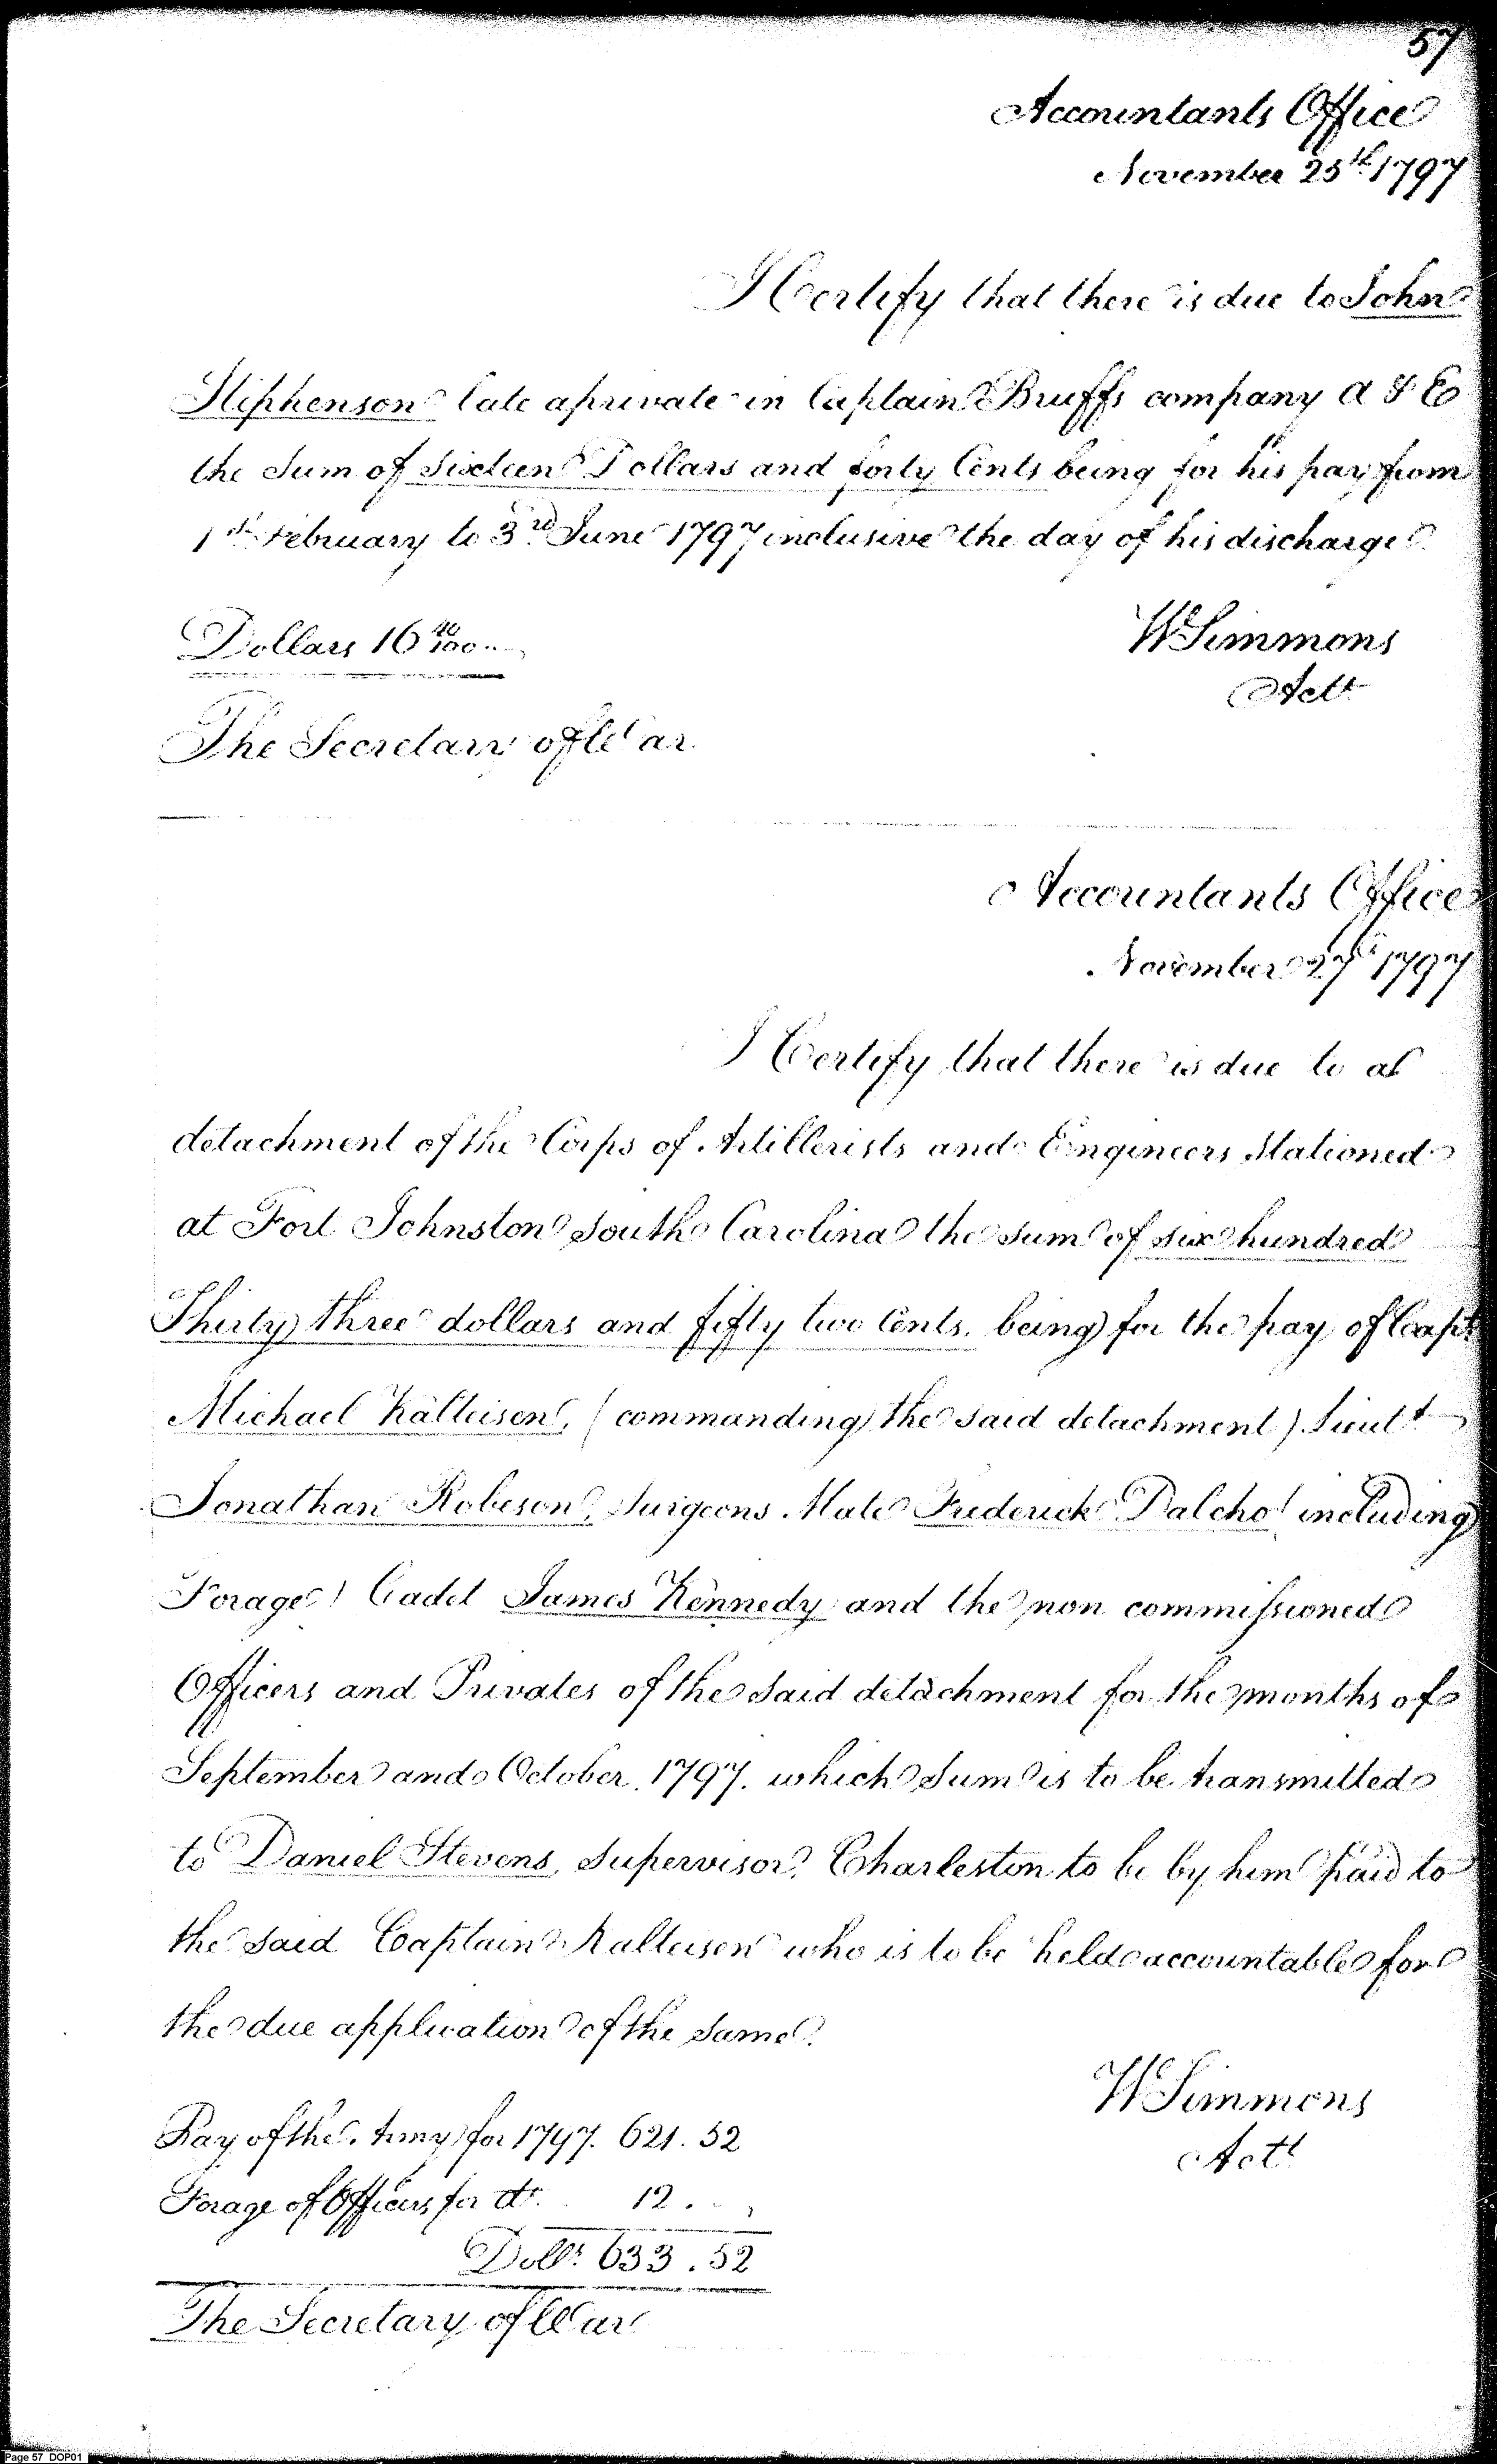 57
Accountants Office
November 25th 1797
I Certify that there is due to John
Stiphenson late a private in Captain Bruffs company A & E
the Sum of Sixteen Dollars and forty Cents being for his pay from
1st February to 3rd June 1797 inclusive the day of his discharge.
Dollars 16 40/100
W Simmons
Actt
The Secretary of War
Accountants Office
November 27th 1797
I Certify that there is due to a
detachment of the Corps of Artillerists and Engineers Stationed
at Fort Johnston South Carolina the sum of six hundred
Thirty three dollars and fifty two Cents. being for the pay of Capt.
Michael Kalteisen, (commanding the said detachment) Lieutt
Jonathan Robeson, Surgeons Mate Frederick Dalcho (including
Forage) Cadet James Kennedy and the non commissioned
Officers and Privates of the said detachment for the months of
September and October 1797. which Sum is to be transmitted
to Daniel Stevens, Supervisor, Charleston to be by him paid to
the said Captain Kalteisen who is to be held accountable for
the due application of the same.
W Simmons
Actt
Pay of the Army for 1797. 621.52
Forage of Officers for do. 12.
Dolls. 633.52
The Secretary of War
Page 57 DOP01